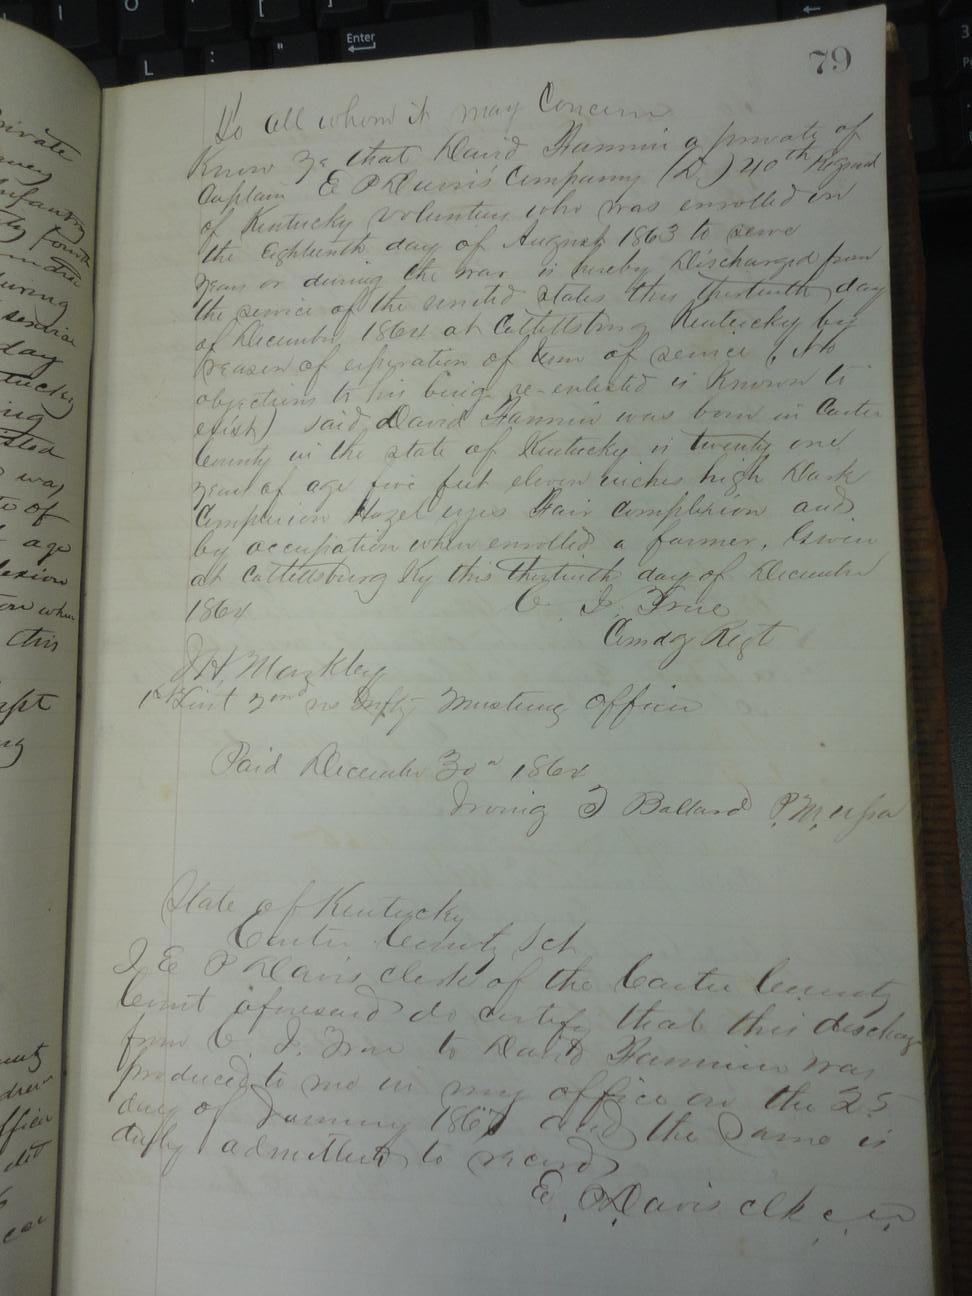 79
To all whom it may Concern
Know ye that David Fannin a private of
Captain E P Davis Company (D) 40th Regment
of Kentucky volunteers who was enrolled on
the Eighteenth day of August 1863 to serve
years or during the war is hereby Discharged from
the service of the united states this thirteenth day
of December 1864 at Cattettsburg Kentucky by
reason of expiration of term of service (No
objections to his being re-enlisted is Known to
exist) said David Fannin was born in Carter
County in the state of Kentucky is twenty one
years of age five feet eleven inches high Dark
Complexion Hazel eyes Fair complexion and
by occupation when enrolled a farmer. Given
at Cattettsburg Ky this thirteenth day of December
1864 C. J. True
Comdg Regt
J H. Markley
1st Liut Infty Mustering officer
Paid December 30th 1864
Irving Ballard P. M. USA
State of Kentucky
Carter County Sct
I E P Davis clerk of the Carter County
Court aforesaid do certify that this discharge
from C. J. True to David Fannin was
produced to me in my office on the 25
day of January 1867 and the same is
duly admitted to record
E. P. Davis clk
private
Infantry
fourth
during
service
day
way
of
age
when
this
officer
Enter
L
:
"